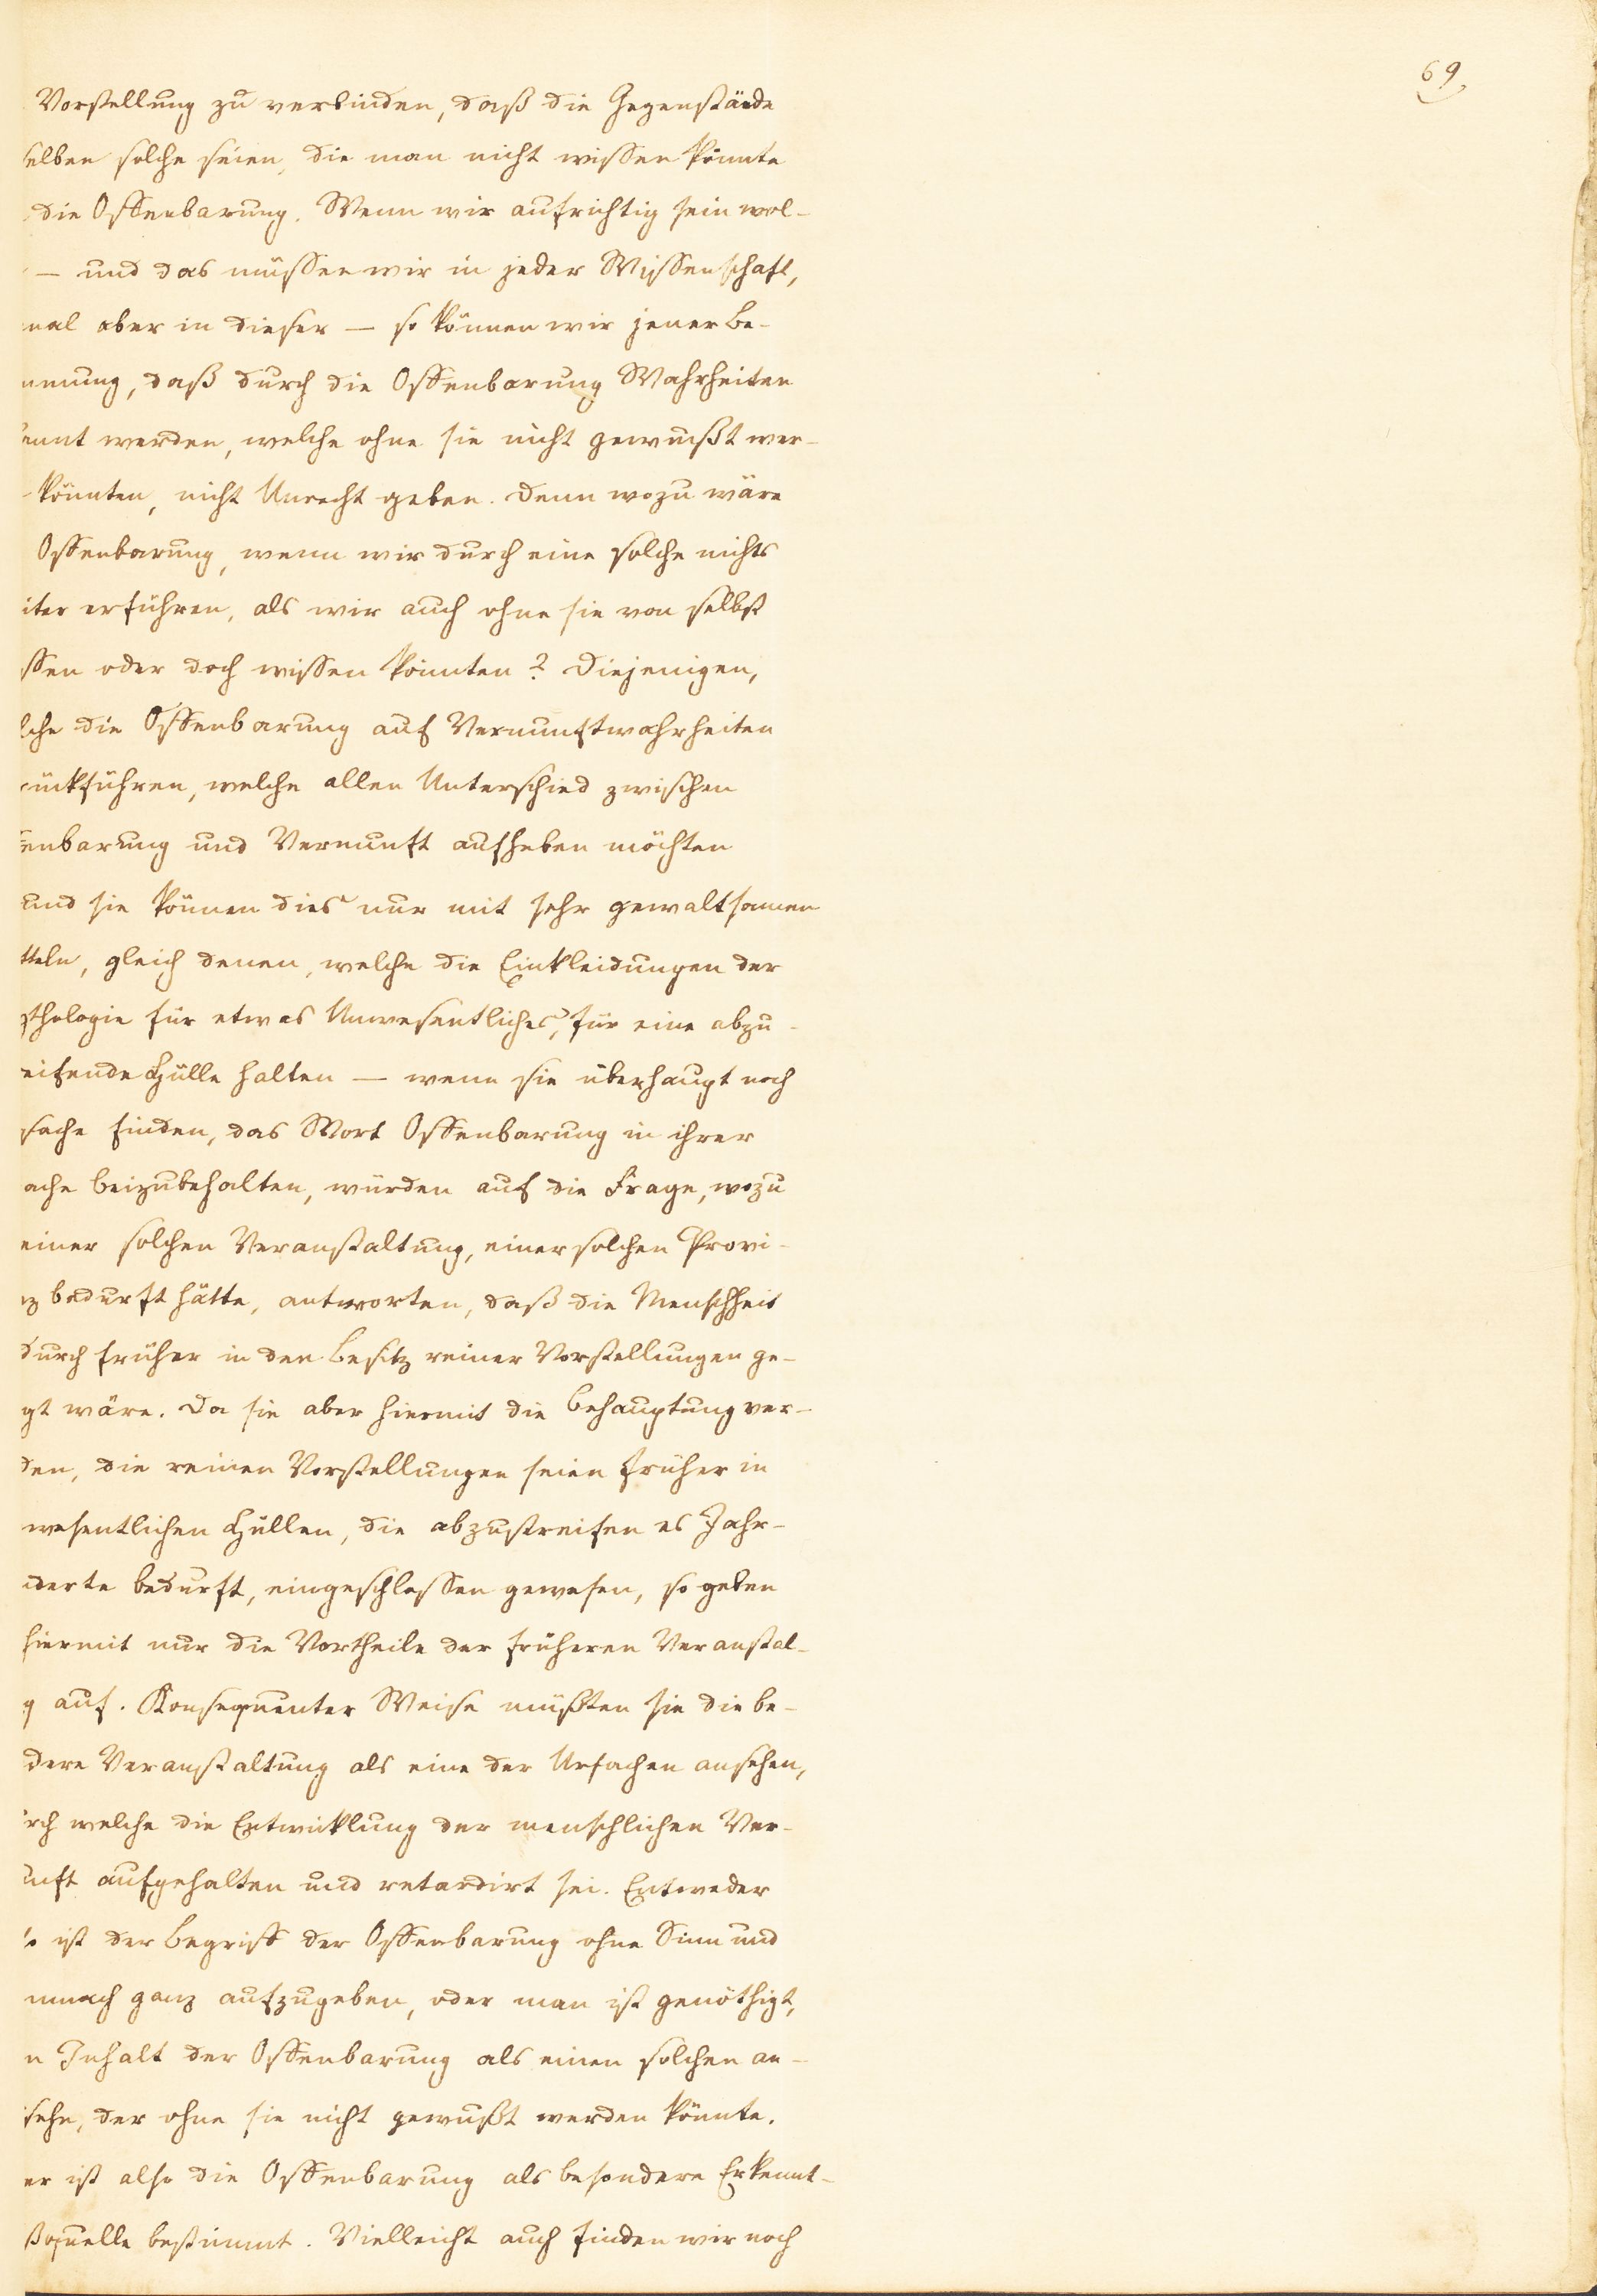 69
Vorstellung zu verbinden, daß die Gegenstände
selben solche seien, die man nicht wissen könnte
die Offenbarung. Wenn wir aufrichtig sein wol-
— und das müssen wir in jeder Wissenschaft,
mal aber in dieser — so können wir jener Be-
mmung, daß durch die Offenbarung Wahrheiten
kannt werden, welche ohne sie nicht gewußt wer-
könnten, nicht Unrecht geben. Denn wozu wäre
Offenbarung, wenn wir durch eine solche nichts
iter erführen, als wir auch ohne sie von selbst
ssen oder doch wissen könnten? Diejenigen,
lche die Offenbarung auf Vernunftwahrheiten
rückführen, welche allen Unterschied zwischen
enbarung und Vernunft aufheben möchten
und sie können dies nur mit sehr gewaltsamen
tteln, gleich denen, welche die Einkleidungen der
ythologie für etwas Unwesentliches, für eine abzu-
eifende Hülle halten — wenn sie überhaupt noch
sache finden, das Wort Offenbarung in ihrer
ache beizubehalten, würden auf die Frage, wozu
einer solchen Veranstaltung, einer solchen Provi-
nz bedurft hätte, antworten, daß die Menschheit
durch früher in den Besitz reiner Vorstellungen ge-
gt wäre. Da sie aber hiermit die Behauptung ver-
den, die reinen Vorstellungen seien früher in
wesentlichen Hüllen, die abzustreifen es Jahr-
derte bedurft, eingeschlossen gewesen, so geben
hiermit nur die Vortheile der früheren Veranstal-
g auf. Konsequenter Weise müßten sie die be-
dere Veranstaltung als eine der Ursachen ansehen,
rch welche die Entwicklung der menschlichen Ver-
unft aufgehalten und retardirt sei. Entweder
so ist der Begriff der Offenbarung ohne Sinn und
mnach ganz aufzugeben, oder man ist genöthigt,
n Inhalt der Offenbarung als einen solchen an-
sehn, der ohne sie nicht gewußt werden könnte.
er ist also die Offenbarung als besondere Erkennt-
ßquelle bestimmt. Vielleicht auch finden wir noch